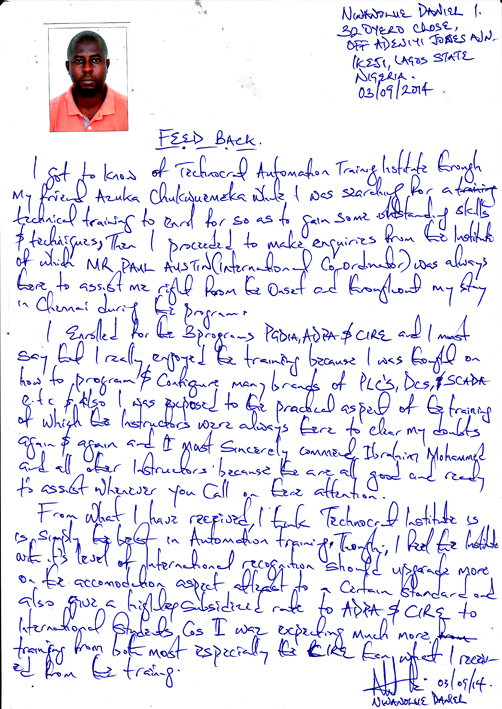 NWANOLUE DANIEL I.
32 OYERO CLOSE,
OFF ADENIYI JONES AVN.
IKEJA, LAGOS STATE
NIGERIA.
03/09/2014.
FEED BACK.
I got to know of Technocrat Automation Traing Institute through
my friend Azuka Chukwuemeka while I was searching for a training
technical training to enrol for so as to gain some outstanding skills
& techniques, Then I proceeded to make enquiries from the Institute
of which MR PAUL AUSTIN (International Co,ordinator) was always
there to assist me right from the onset and throughout my stay
in Chennai during the program.
I Enrolled for the 3 programs PGDIA, ADPA & CIRE and I must
say that I really enjoyed the training because I was taught on
how to program & Configure many brands of PLC's, DCS, & SCADA
e.t.c & Also I was exposed to the practical aspect of the training
of which the Instructors were always there to clear my doubts
again & again and I most sincerely commend Ibrahim Mohammed
and all other Instructors because the are all good and ready
to assist whenever you Call on their attention.
From what I have received, I think Technocrat Institute is
is simply the best in Automation training. Though, I feel the Institute
with its level of International recognition should upgrade more
on the accomodation aspect atleast to a Certain standard and
also give a highly subsidized rate to ADPA & CIRE to
International Students Cos I was expecting much more from
training from both most especially the CIRE than what I receiv-
ed from the traing.
03/09/14.
NWANOLUE DANIEL